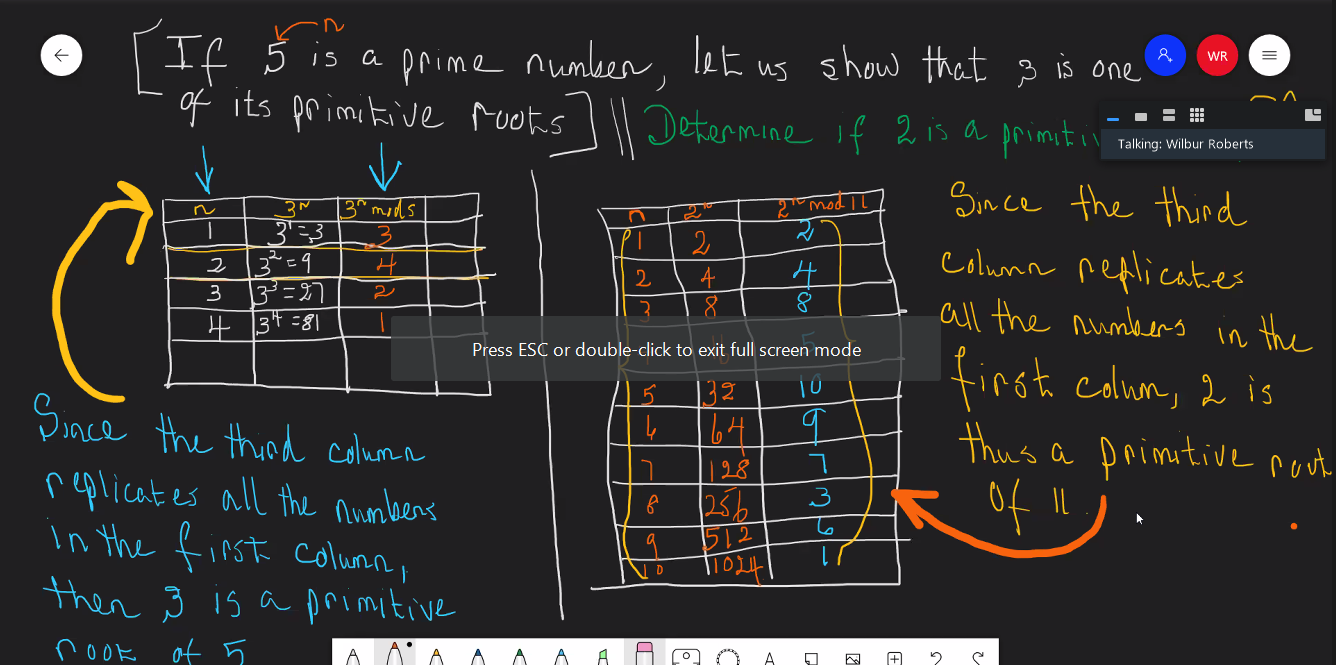 n
[If 5 is a prime number, let us show that 3 is one
of its primitive roots]
Determine if 2 is a
WR
Talking: Wilbur Roberts
n 3^n 3^n mod 5
1 3^1=3 3
2 3^2=9 4
3 3^3=27 2
4 3^4=81 1
Since the third column
replicates all the numbers
in the first column,
then 3 is a primitive
root of 5
n 2^n 2^n mod 11
1 2 2
2 4 4
3 8 8
5
5 32 10
6 64 9
7 128 7
8 256 3
9 512 6
10 1024 1
Press ESC or double-click to exit full screen mode
Since the third
column replicates
all the numbers in the
first colum, 2 is
thus a primitive root
Of 11.